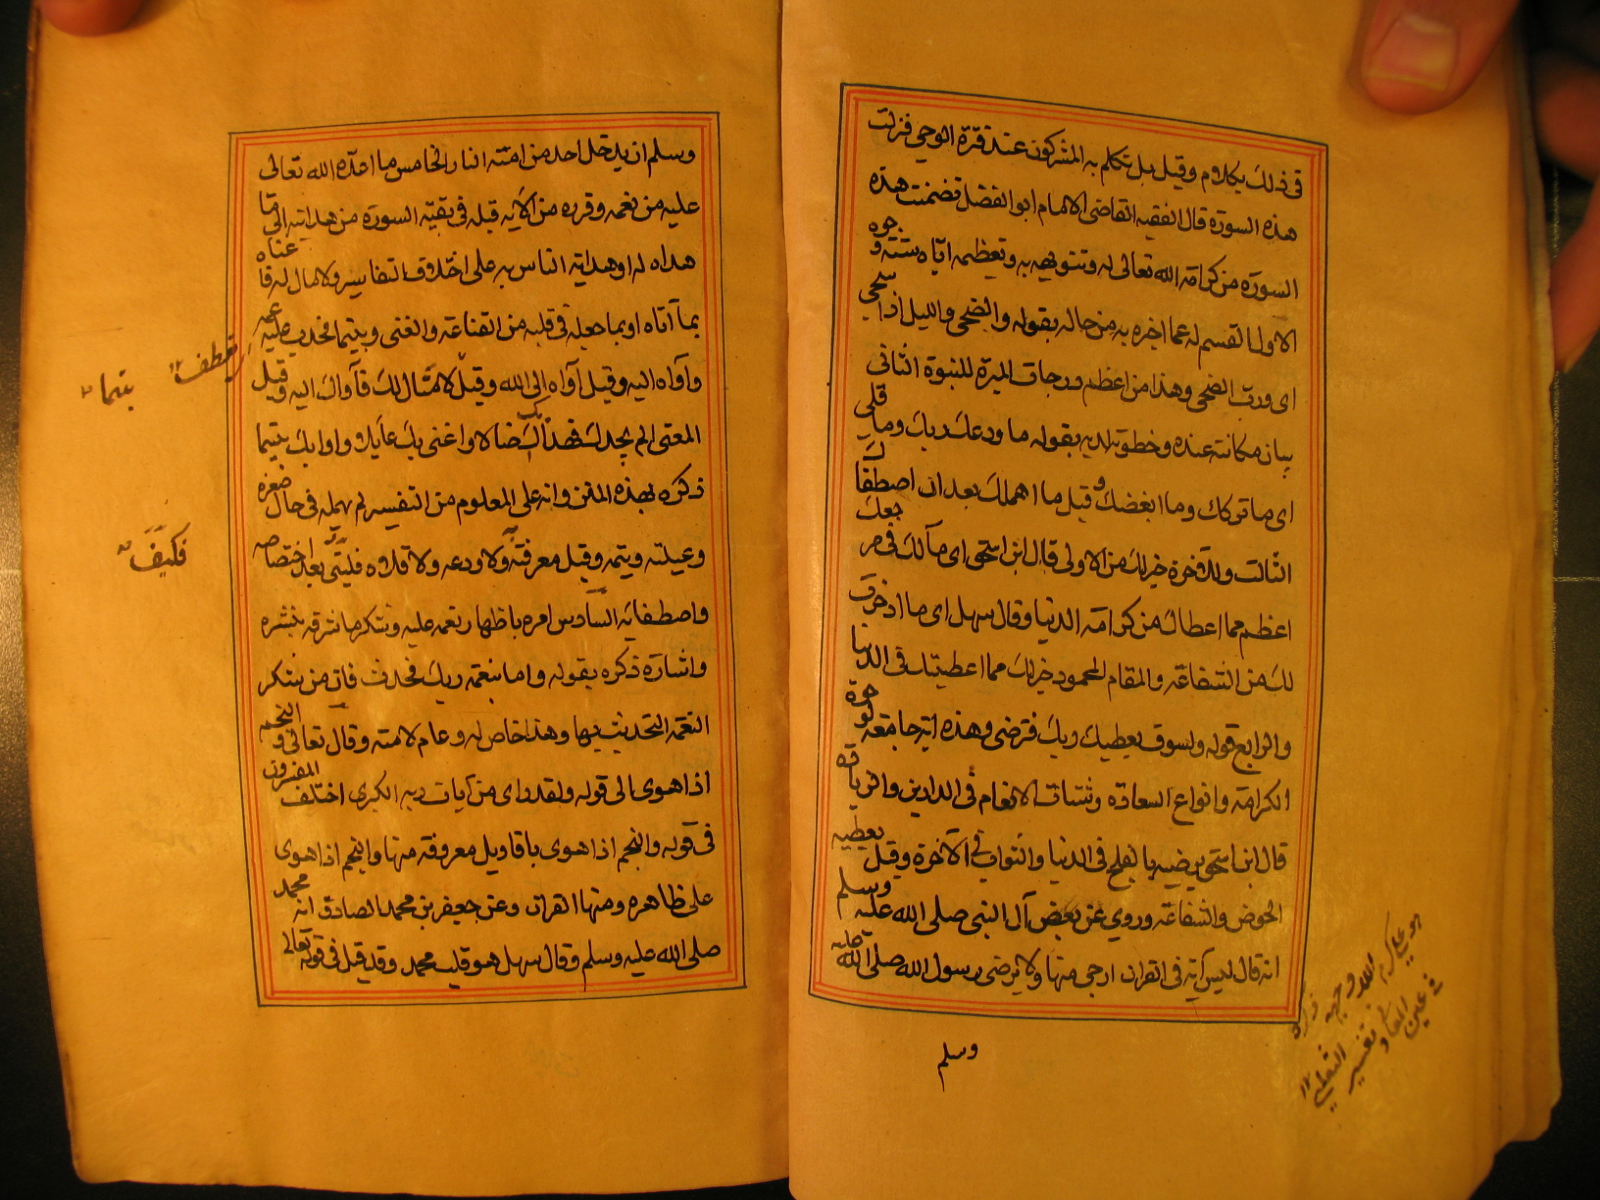 فى ذلك بكلام وقيل بل تكلم به المشركون عند فترة الوحى فنزلت
هذه السورة قال الفقيه القاضى الامام ابو الفضل تضمنت هذه
السورة من كرامة الله تعالى له وتنويهه به وتعظيمه اياه ستة وجوه
الاول القسم له عما اخبره به من حاله بقوله والضحى والليل اذا سجى
اى ورب الضحى وهذا من اعظم درجات المبرة للنبوة الثانى
بيان مكانته عنده وخطوته لديه بقوله ما ودعك ربك وما قلى
اى ما تركك وما ابغضك وقيل ما اهملك بعد ان اصطفاك
الثالث وللآخرة خير لك من الاولى قال ابن اسحق اى مآلك فى مرجعك
اعظم مما اعطاك من كرامة الدنيا وقال سهل اى ما ادخرت
لك من الشفاعة والمقام المحمود خير لك مما اعطيتك فى الدنيا
والرابع قوله ولسوف يعطيك ربك فترضى وهذه اية جامعة لوجوه
الكرامة وانواع السعادة وشتات الانعام فى الدارين والزيادة
قال ابن اسحق يرضيه بالفلج فى الدنيا والثواب فى الآخرة وقيل يعطيه
الحوض والشفاعة وروي عن بعض آل النبى صلى الله عليه وسلم
انه قال ليس آية فى القران ارجى منها ولا يرضى رسول الله صلى الله عليه
وسلم
هو على كرم الله وجهه
وسلم ان يدخل احد من امته النار الخامس ما عده الله تعالى
عليه من نعمه وقرره من الآئه قبله فى بقية السورة من هدايته الى ما
هداه له او هداية الناس به على اختلاف التفاسير ولا مال له فاغناه
بما آتاه او بما جعله فى قلبه من القناعة والغنى ويتيما فحدب عليه عمه
وآواه اليه وقيل آواه الى الله وقيل لا مثال لك فآواك اليه وقيل
المعنى الم يجدك فهدى بك ضالا واغنى بك عائلا واوا بك يتيما
ذكره بهذه المنن وانه على المعلوم من التفسير لم يهمله فى حال صغره
وعيلته ويتمه وقبل معرفته به ولا ودعه ولا قلاه فكيف بعد اختصاصه
واصطفائه السادس امره باظهار نعمه عليه وشكر ما شرفه بنشره
واشارة ذكره بقوله واما بنعمة ربك فحدث فان من شكر
النعمة التحديث بها وهذا خاص له وعام لامته وقال تعالى والنجم
اذا هوى الى قوله ولقد راى من آيات ربه الكبرى اختلف المفسرون
فى قوله والنجم اذا هوى باقاويل معروفة منها والنجم اذا هوى
على ظاهره ومنها القران وعن جعفر بن محمد الصادق انه محمد
صلى الله عليه وسلم وقال سهل هو قلب محمد وقد قيل فى قوله تعالى
يتيما
فكيف